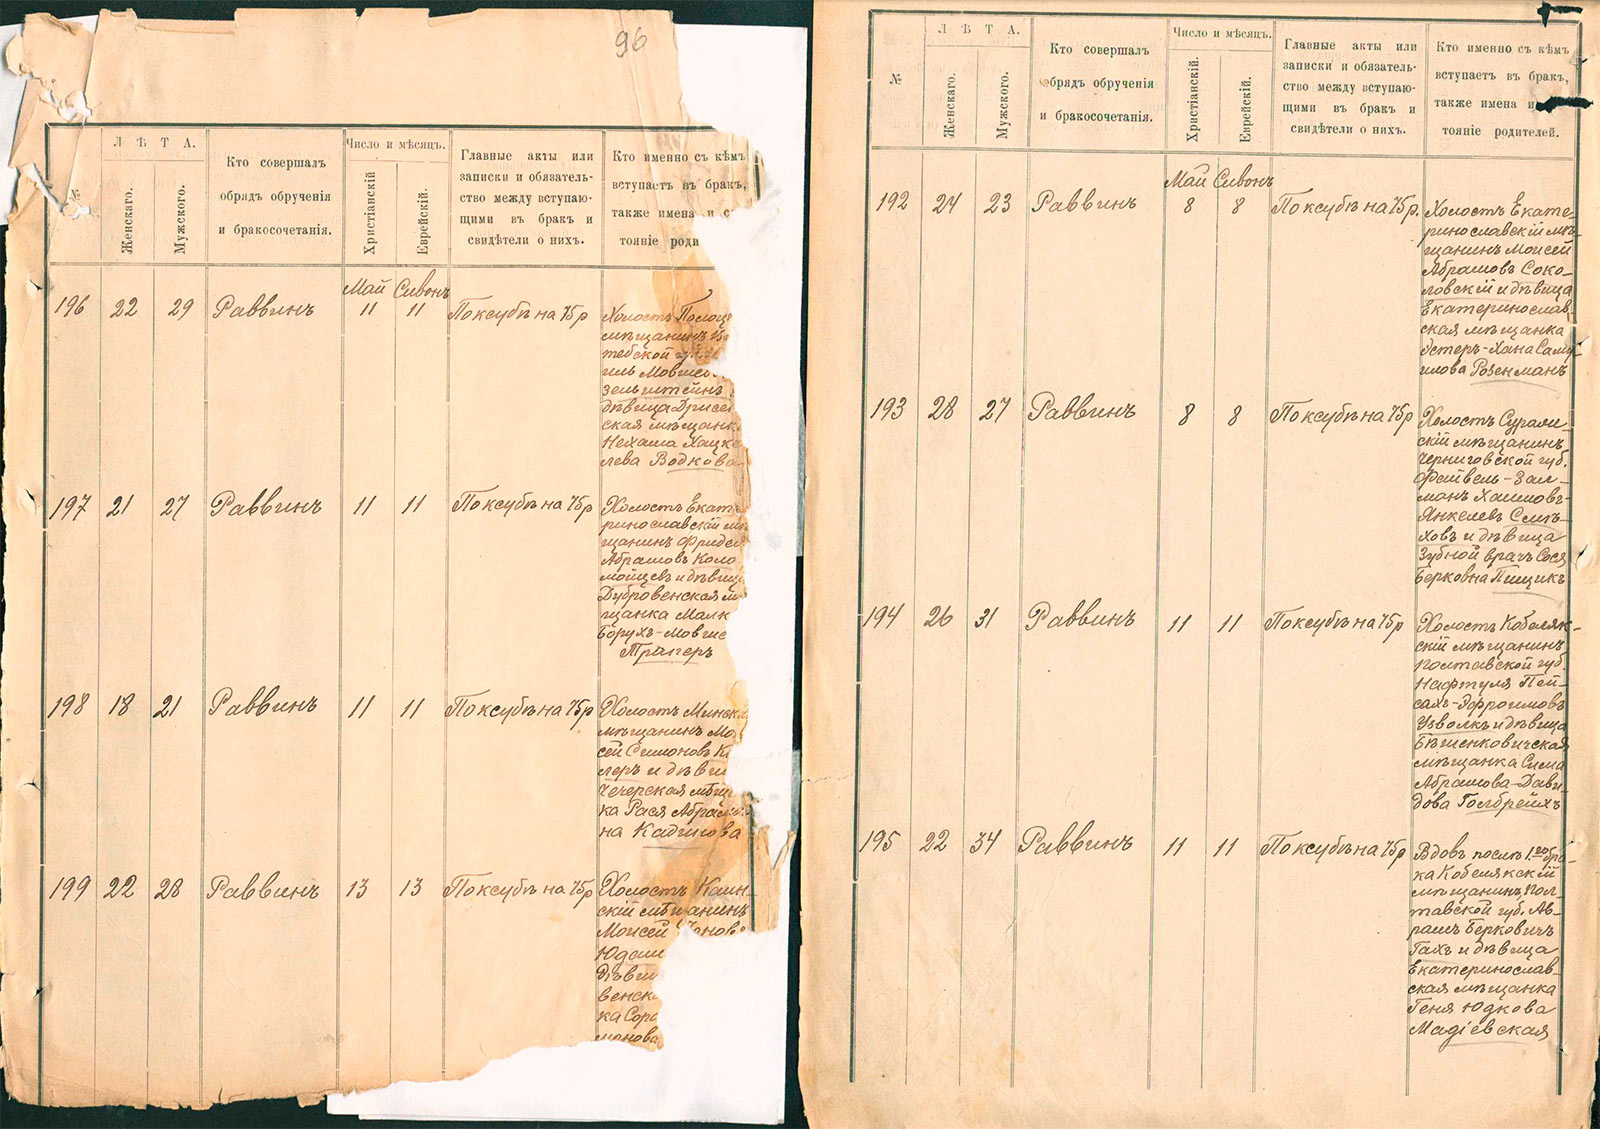 96
№
Л Ѣ Т А.
Женскаго.
Мужского.
Кто совершалъ
обрядъ обрученія
и бракосочетанія.
Число и мѣсяцъ.
Христіанскій
Еврейскій.
Главные акты или
записки и обязатель-
ство между вступаю-
щими въ бракъ и
свидѣтели о нихъ.
Кто именно съ кѣмъ
вступаетъ въ бракъ,
также имена и с
тояніе роди
Май Сивонъ
196 22 29 Раввинъ 11 11 По ксубѣ на 75 р
Холостъ Полоц
мѣщанинъ
тебской гу
иль Мовшев
зельштейнъ
дѣвица Дрисен
ская мѣщанк
Нехама Хацке
лева Водкова
197 21 27 Раввинъ 11 11 По ксубѣ на 75 р
Холостъ Екат
ринославскій мѣ
щанинъ Фридел
Абрамовъ Коло
мойцевъ и дѣвиц
Дубровенская мѣ
щанка Малк
Борухъ-Мовше
Траперъ
198 18 21 Раввинъ 11 11 По ксубѣ на 75 р
Холостъ Минск
мѣщанинъ Мо
сей Симоновъ К
леръ и дѣви
Чечерская мѣщ
ка Рася Абрам
на Кадинова
199 22 28 Раввинъ 13 13 По ксубѣ на 75 р
Холостъ Каин-
скій мѣщанинъ
Моисей оновъ
Юдел
дѣви
венск
ка Сора
монова
№
Л Ѣ Т А.
Женскаго.
Мужского.
Кто совершалъ
обрядъ обрученія
и бракосочетанія.
Число и мѣсяцъ.
Христіанскій.
Еврейскій.
Главные акты или
записки и обязатель-
ство между вступаю-
щими въ бракъ и
свидѣтели о нихъ.
Кто именно съ кѣмъ
вступаетъ въ бракъ,
также имена и
тояніе родителей.
Май Сивонъ
192 24 23 Раввинъ 8 8 По ксубѣ на 75 р.
Холостъ Екате-
ринославскій мѣ-
щанинъ Моисей
Абрамовъ Соко-
ловскій и дѣвица
Екатеринослав-
ская мѣщанка
Эстеръ-Хана Саму-
илова Розенманъ
193 28 27 Раввинъ 8 8 По ксубѣ на 75 р
Холостъ Сураж-
скій мѣщанинъ
Черниговской губ.
Файвель-Зал-
манъ Хаимовъ-
Янкелевъ
ховъ и дѣвица
Зубной врачъ Сося
Берковна Пищикъ
194 26 31 Раввинъ 11 11 По ксубѣ на 75 р
Холостъ Кобеляк-
скій мѣщанинъ
Полтавской губ.
Нафтуля Пей-
сахъ-Эфроимовъ
Изволк и дѣвица
Бѣшенковичская
мѣщанка Сима
Абрамова-Дави-
дова Голбрейхъ
195 22 34 Раввинъ 11 11 По ксубѣ на 75 р
Вдовъ послѣ 1-го бра-
ка Кобелякскій
мѣщанинъ Пол-
тавской губ. Ав-
рамъ Берковичъ
Гахъ и дѣвица
Екатеринослав-
ская мѣщанка
Геня Юдкова
Мадіевская